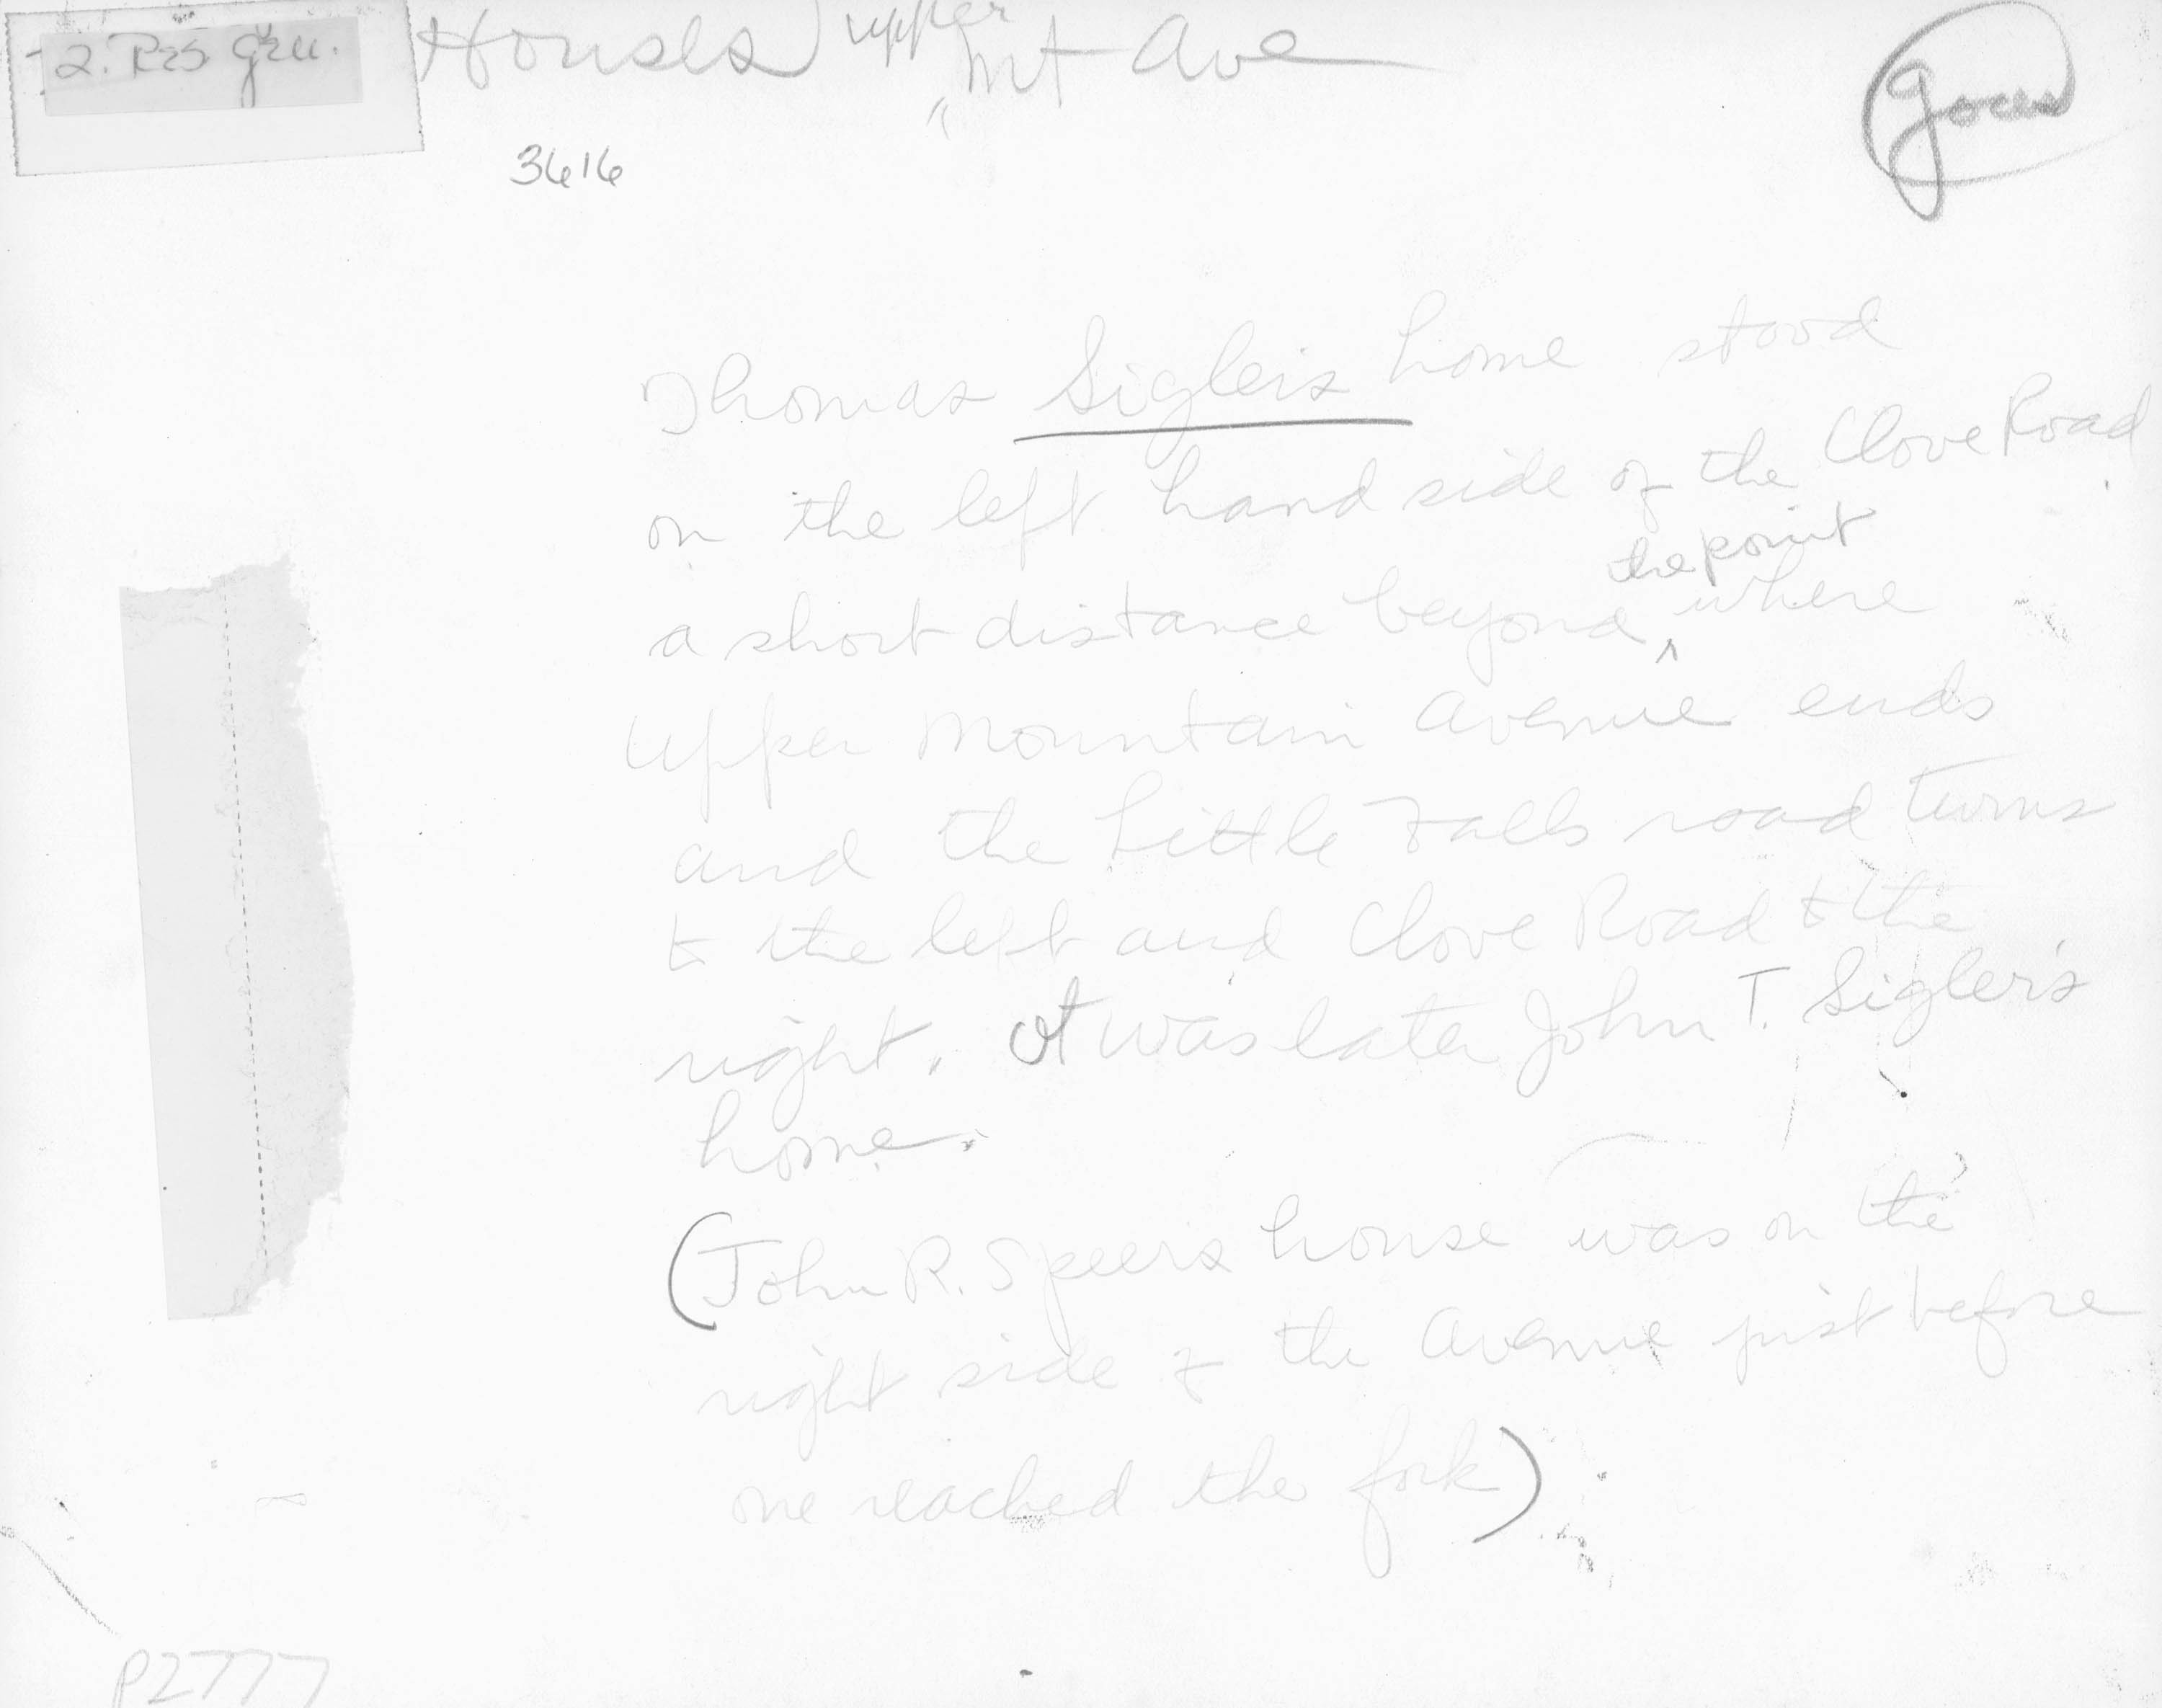 2. Res Gen.
Houses upper Mt Ave
goes
3616
Thomas Sigler's home stood
on the left hand side of the Clove Road
a short distance beyond the point where
Upper Mountain Avenue ends
and the Little Falls road turns
to the left and Clove Road to the
right. It was later John T. Sigler's
home.
(John R. Speer's house was on the
right side of the Avenue just before
one reached the fork)
P2777